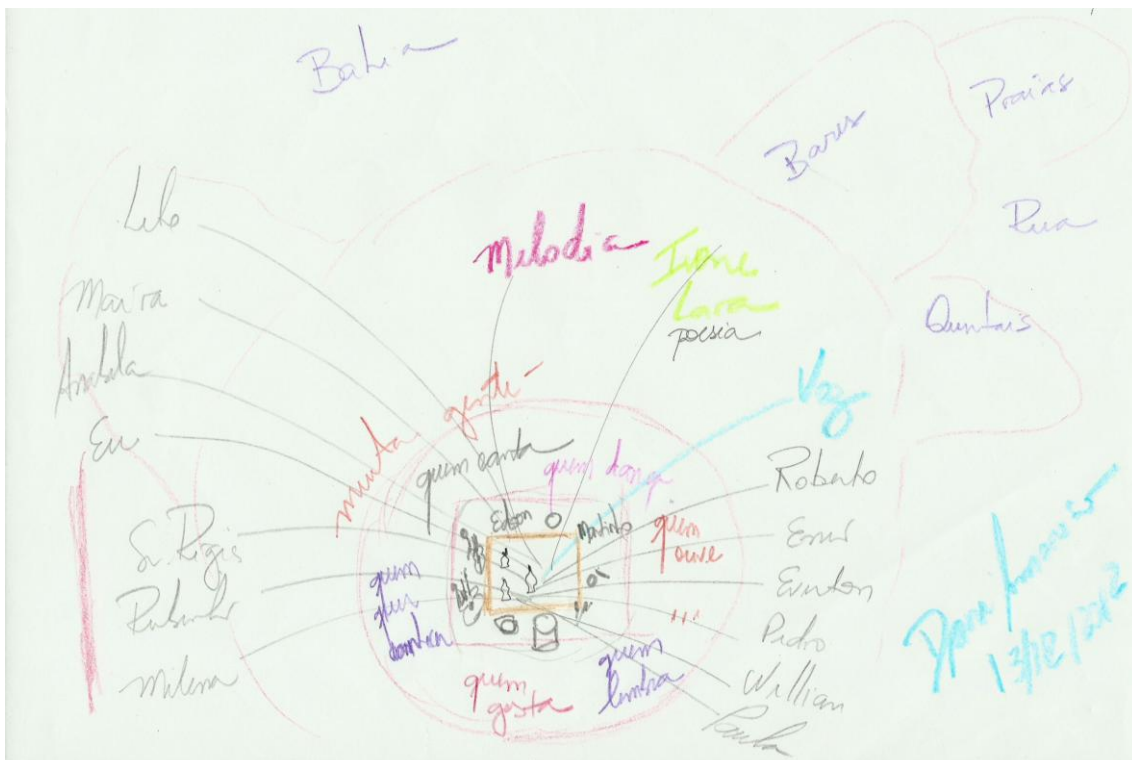 Bahia
Bares
Praias
Rua
Quintais
Lelo
Maíra
Anabela
Eu
Sr. Régis
Rubinho
Milena
Melodia
Ivone
Lara
poesia
Voz
muita gente
quem canta
quem dança
Edson
Martinho
quem
ouve
...
quem
quer
quem
lembra
quem
gosta
Roberto
Everton
Pedro
Willian
Paula
13/12/2012